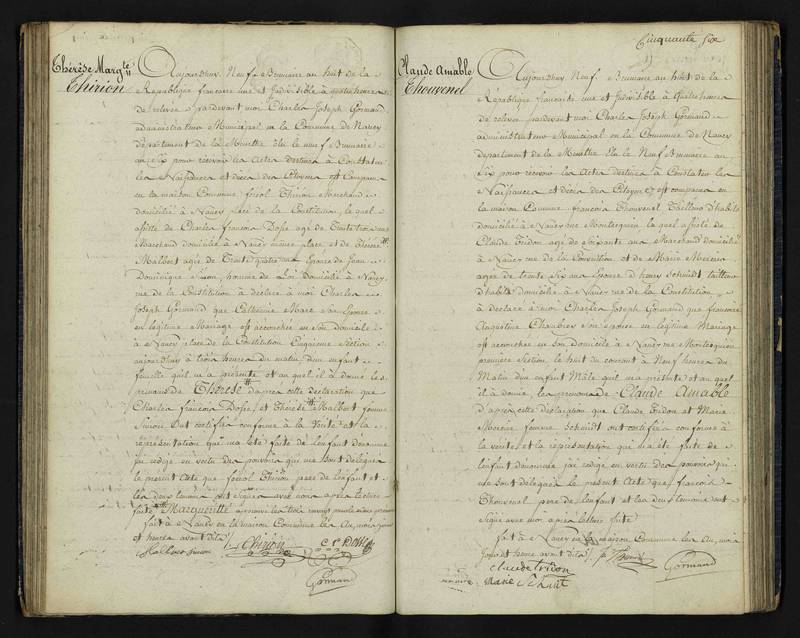 Thérèse Marg.te
Thirion
Aujourdhuy Neuf Brumaire an huit de la
République francaise une et Indivisible à quatre heures
de relevée pardevant moi Charles Joseph Gormand
administrateur Municipal en la Commune de Nancy
département de la Meurthe Elu le neuf Brumaire
an six pour recevoir les Actes destinés à Constater
les Naissances et décès des Citoyens est Comparu
en la maison Commune Thirion Marchand
domicilié à Nancy place de la Constitution, le quel
assisté de Charles françois agé de Trente
Marchand domicilié à Nancy même place, et de Thérèse
Malbert agée de Trente quatre ans Epouse de Jean
Dominique Simon homme de Loi Domicilié à Nancy
rue de la Constitution à déclaré à moi Charles
Joseph Gormand que Catherine Marc son Epouse
en légitime Mariage est accouchée en son domicile
à Nancy place de la Constitution Cinquieme Section
aujourdhuy à trois heures du matin d'un enfant
femelle qu'il m'a présenté et au quel il à donné les
prenoms de Thérèse # d'après cette déclaration que
Charles francois et Thérèse Malbert femme
Simon Ont certifiée conforme à la Vérité et la
représentation qui m'a été faite de l'enfant denommé
j'ai rédigé en vertu des pouvoirs qui me sont délégués
le present Acte que Thirion pere de l'enfant et
les deux temoins ont signés avec nous après lecture
faite # Marguerite approuvé
fait à Nancy en la maison Commune les An, mois jour
et heure avant dits
Malbert Simon Thirion
Gormand
Cinquante Six
Claude Amable
Thouvenel
Aujourdhuy Neuf Brumaire an huit de la
République francaise une et Indivisible à Quatre heures
de relevée pardevant moi Charles Joseph Gormand
administrateur Municipal en la Commune de Nancy
departement de la Meurthe Elu le Neuf Brumaire an
Six pour recevoir les Actes destinés à Constater les
Naissances et décès des Citoyens est comparu en
la maison Commune françois Thouvenel Tailleur d'habits
domicilié à Nancy rue Montesquieu le quel assisté de
Claude Tridon agé de soixante ans Marchand domicilié
à Nancy rue de la Constitution et de Marie
agée de trente Six ans Epouse d'henry Schmidt tailleur
d'habits domicilié à Nancy rue de la Constitution
à déclaré à moi Charles Joseph Gormand que francoise
Augustine son épouse en légitime Mariage
est accouchée en son Domicile à Nancy rue Montesquieu
première Section, le huit du courant à Neuf heures du
Matin d'un enfant Mâle qu'il m'a présenté et au quel
il à donné les prenoms de Claude Amable
d'après cette déclaration que Claude Tridon et Marie
femme Schmidt ont certifiée conforme à
la verité et la représentation qui m'a été faite de
l'enfant denommé j'ai rédigé en vertu des pouvoirs qui
me sont délégués le présent Acte que françois
Thouvenel pere de l'enfant et les deux temoins ont
Signé avec moi après lecture faite
fait à Nancy en la maison Commune les An, mois
jour et heure avant dits
claude tridon
Marie
Gormand